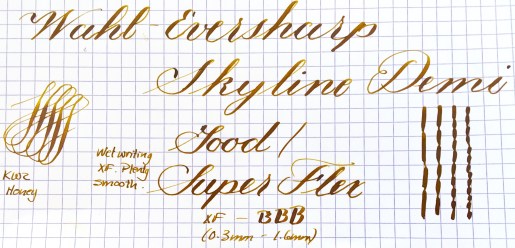 Wahl-Eversharp
Skyline Demi
Good /
Super Flex
XF - BBB
(0.3mm - 1.6mm)
Wet writing
XF. Plenty
smooth.
KWZ
Honey